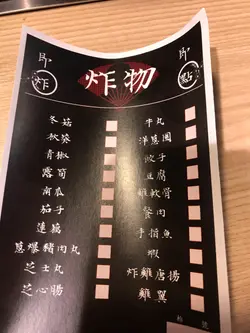 即炸
炸物
即點
冬菇
秋葵
青椒
露筍
南瓜
茄子
蓮藕
蔥爆豬肉丸
芝士丸
芝心腸
牛丸
洋蔥圈
餃子
豆腐
雞軟骨
蟹肉
手指魚
蝦
炸雞唐揚
雞翼